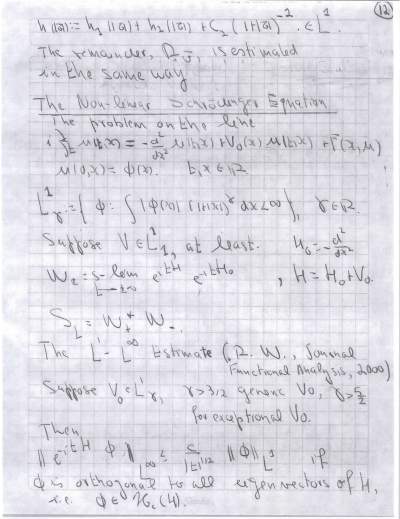 12
h(|a|) := h_1(|a|) + h_2(|a|) + C_2 (1+|a|)^{-2} ∈ L^1.
The remainder, R_j, is estimated
in the same way
The Non-linear Schrödinger Equation
The problem on the line
i ∂/∂t u(t,x) = - d^2/dx^2 u(t,x) + V_0(x) u(t,x) + F(x,u)
u(0,x) = ϕ(x). t,x ∈ R
L^1_γ = { ϕ : ∫ |ϕ(x)| (1+|x|)^γ dx < ∞ }, γ ∈ R.
Suppose V ∈ L^1_1, at least. H_0 = - d^2/dx^2
W_± = s-lim e^{itH} e^{-itH_0}, H = H_0 + V_0.
S_L = W_+^* W_-.
The L^1 - L^∞ Estimate (R. W., Journal
Functional Analysis, 2000)
Suppose V_0 ∈ L^1_γ, γ > 3/2 generic V_0, γ > 5/2
for exceptional V_0.
Then
‖ e^{-itH} ϕ ‖_{L^∞} ≤ C/|t|^{1/2} ‖ϕ‖_{L^1} if
ϕ is orthogonal to all eigenvectors of H,
i.e. ϕ ∈ H_c(H).